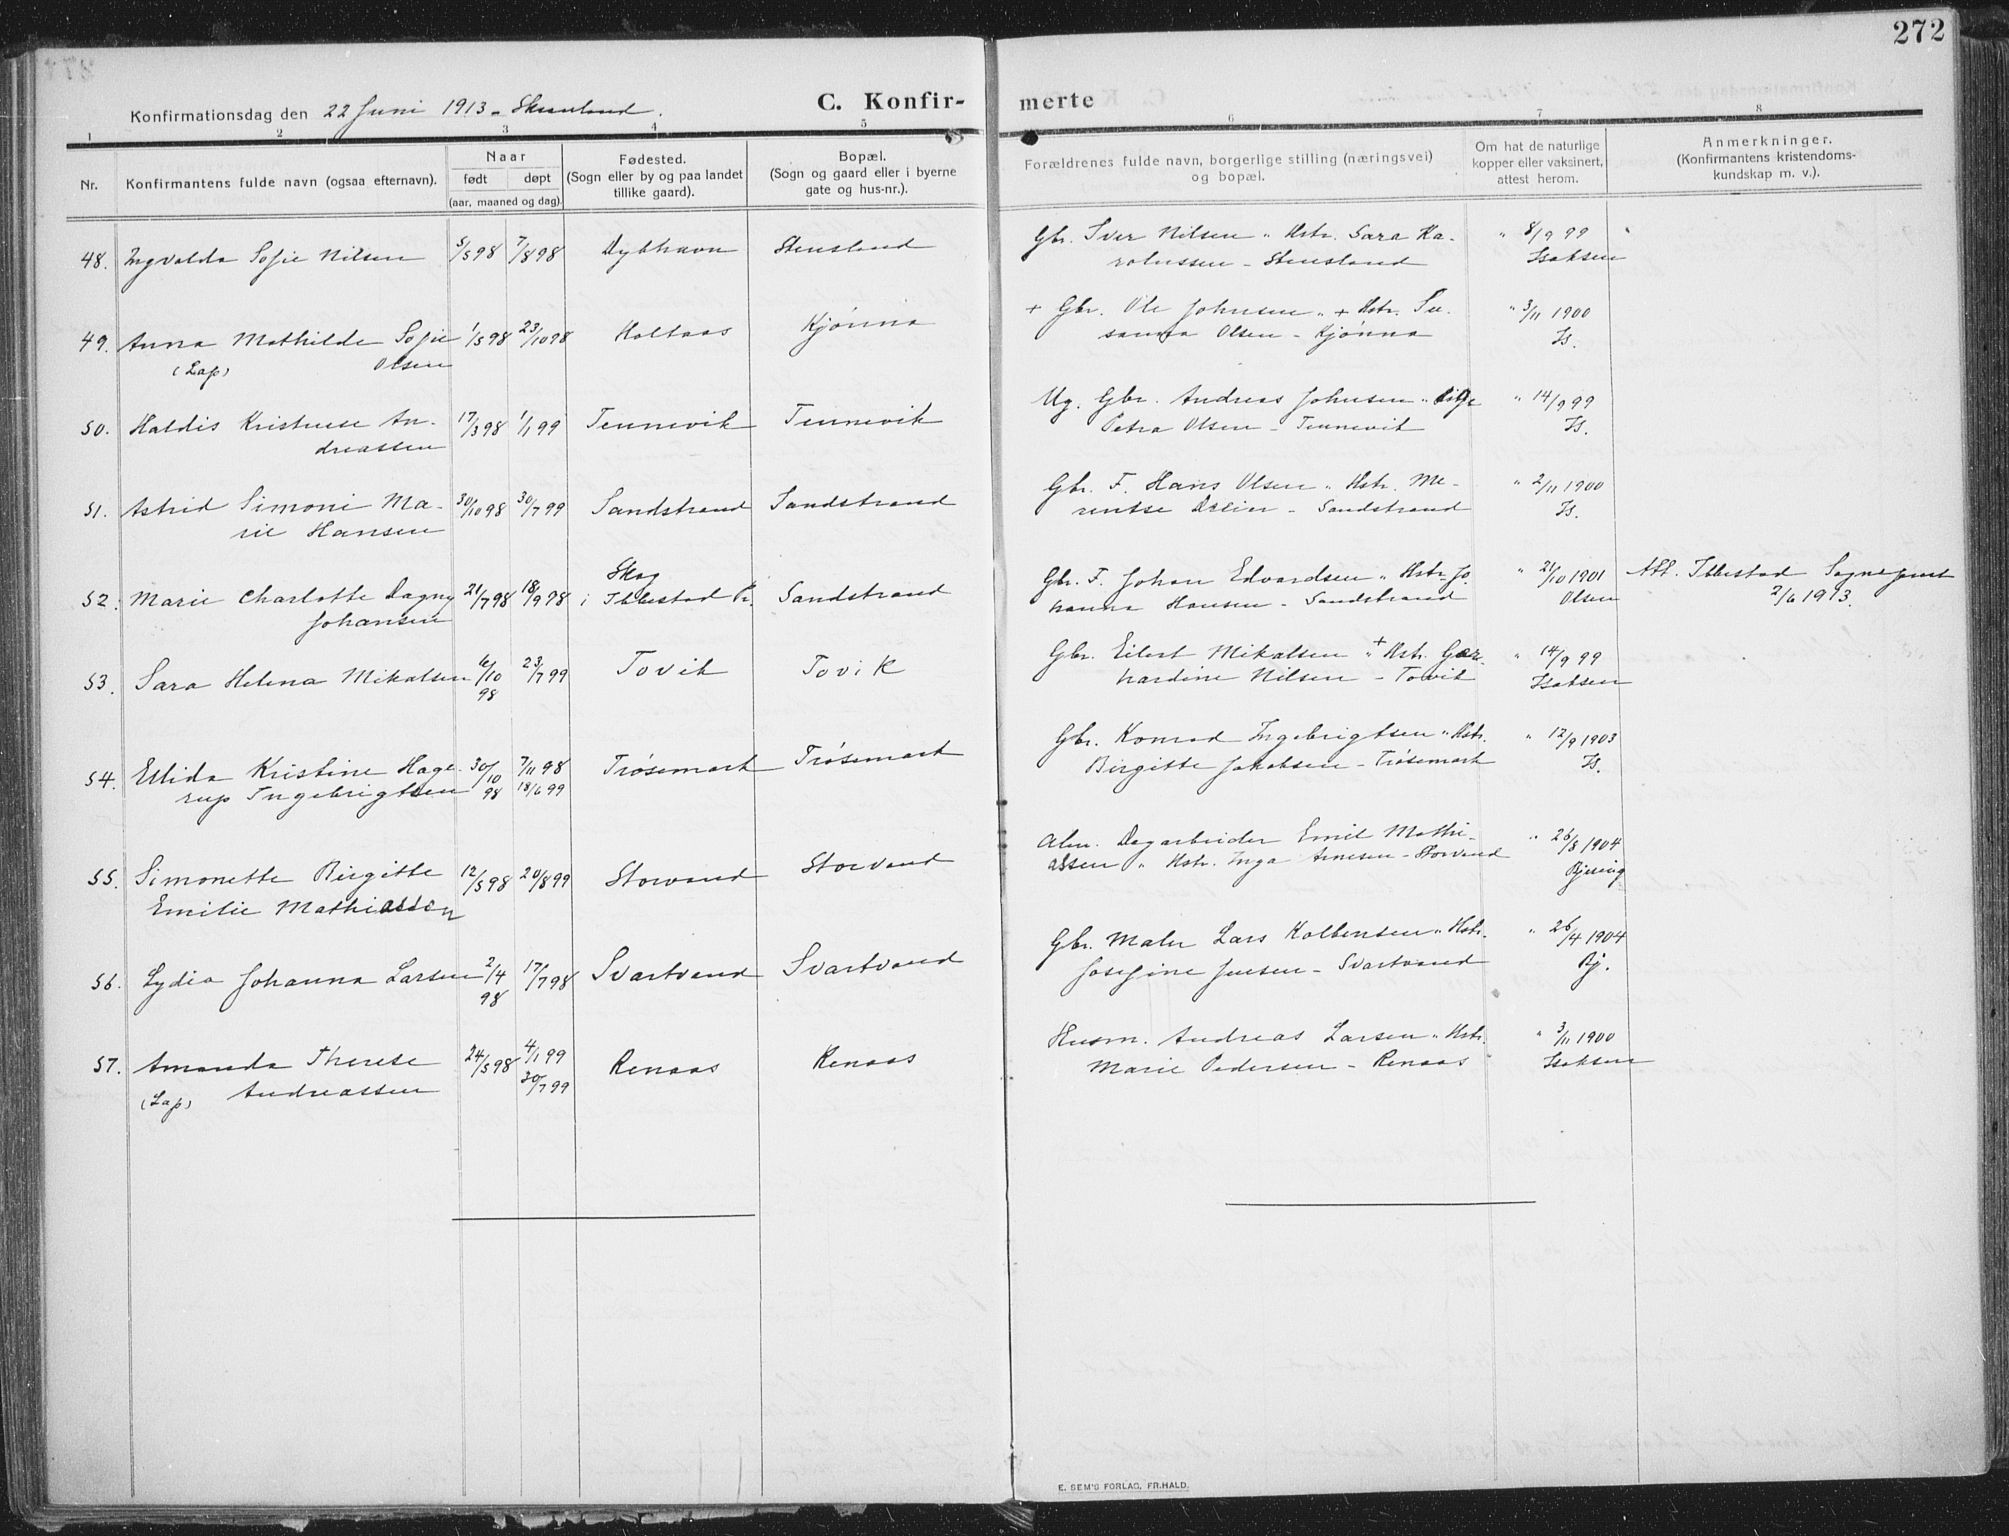 272
Konfirmationsdag den 22 Juni 1913 - Skaanland.
C. Konfir- merte
1 2 3 4 5 6 7 8
Nr.
Konfirmantens fulde navn (ogsaa efternavn).
Naar
født døpt
(aar, maaned og dag).
Fødested.
(Sogn eller by og paa landet
tillike gaard).
Bopæl.
(Sogn og gaard eller i byerne
gate og hus-nr.).
Forældrenes fulde navn, borgerlige stilling (næringsvei)
og bopæl.
Om hat de naturlige
kopper eller vaksinert,
attest herom.
Anmerkninger.
(Konfirmantens kristendoms-
kundskap m. v.).
48. Ingvalda Sofie Nilsen 5/5 98 7/8 98 Dybhavn Stensland Gbr. Iver Nilsen " Hstr. Sara Ka- " 8/9 99 "
rolussen - Stensland Isaksen
49. Anna Mathilde Sofie 1/5 98 23/10 98 Holtaas Kjønna + Gbr. Ole Johnsen " + Hstr. Su- " 3/11 1900
(Lap) Olsen sanna Olsen - Kjønna Is.
50. Haldis Kristense An- 17/3 98 1/1 99 Tennevik Tennevik Ug. Gbr. Andreas Johnsen " Pige " 14/9 99
dreassen Petra Olsen - Tennevik Is.
51. Astrid Simoni Ma- 30/10 98 30/7 99 Sandstrand Sandstrand Gbr. F. Hans Olsen " Hstr. Me- " 2/11 1900
rie Hansen rentse - Sandstrand Is.
52. Marie Charlotte Dagny 21/7 98 18/9 98 Skog i Ibbestad Pr. Sandstrand Gbr. F. Johan Edvardsen " Hstr. Jo- " 21/10 1901 Att. Ibbestad Sogneprest
Johansen hanna Hansen - Sandstrand Olsen 2/6 1913.
53. Sara Helena Mikalsen 6/10 98 23/7 99 Tovik Tovik Gbr. Eilert Mikalsen " + Hstr. Ger- " 14/9 99
hardine Nilsen - Tovik Isaksen
54. Ellida Kristine Hage- 30/10 98 7/11 98 Trøsemark Trøsemark Gbr. Konrad Ingebrigtsen " Hstr. " 12/9 1903
rup Ingebrigtsen 18/6 99 Birgitte Jakobsen - Trøsemark Is.
55. Simonette Birgitte 12/5 98 20/8 99 Storvand Storvand Alm. Dagarbeider Emil Mathi- " 26/8 1904
Emilie Mathiassen assen " Hstr. Inga Arnesen - Storvand
56. Lydia Johanna Larsen 2/4 98 17/7 98 Svartvand Svartvand Gbr. Maler Lars Kolbensen " Hstr. " 26/4 1904
Josefine Jensen - Svartvand Bj.
57. Amanda Therese 24/5 98 4/1 99 Renaas Renaas Husm. Andreas Larsen " Hstr. " 3/11 1900
(Lap) Andreassen 30/7 99 Marie Pedersen - Renaas Isaksen
E. SEM'S FORLAG, FR.HALD.